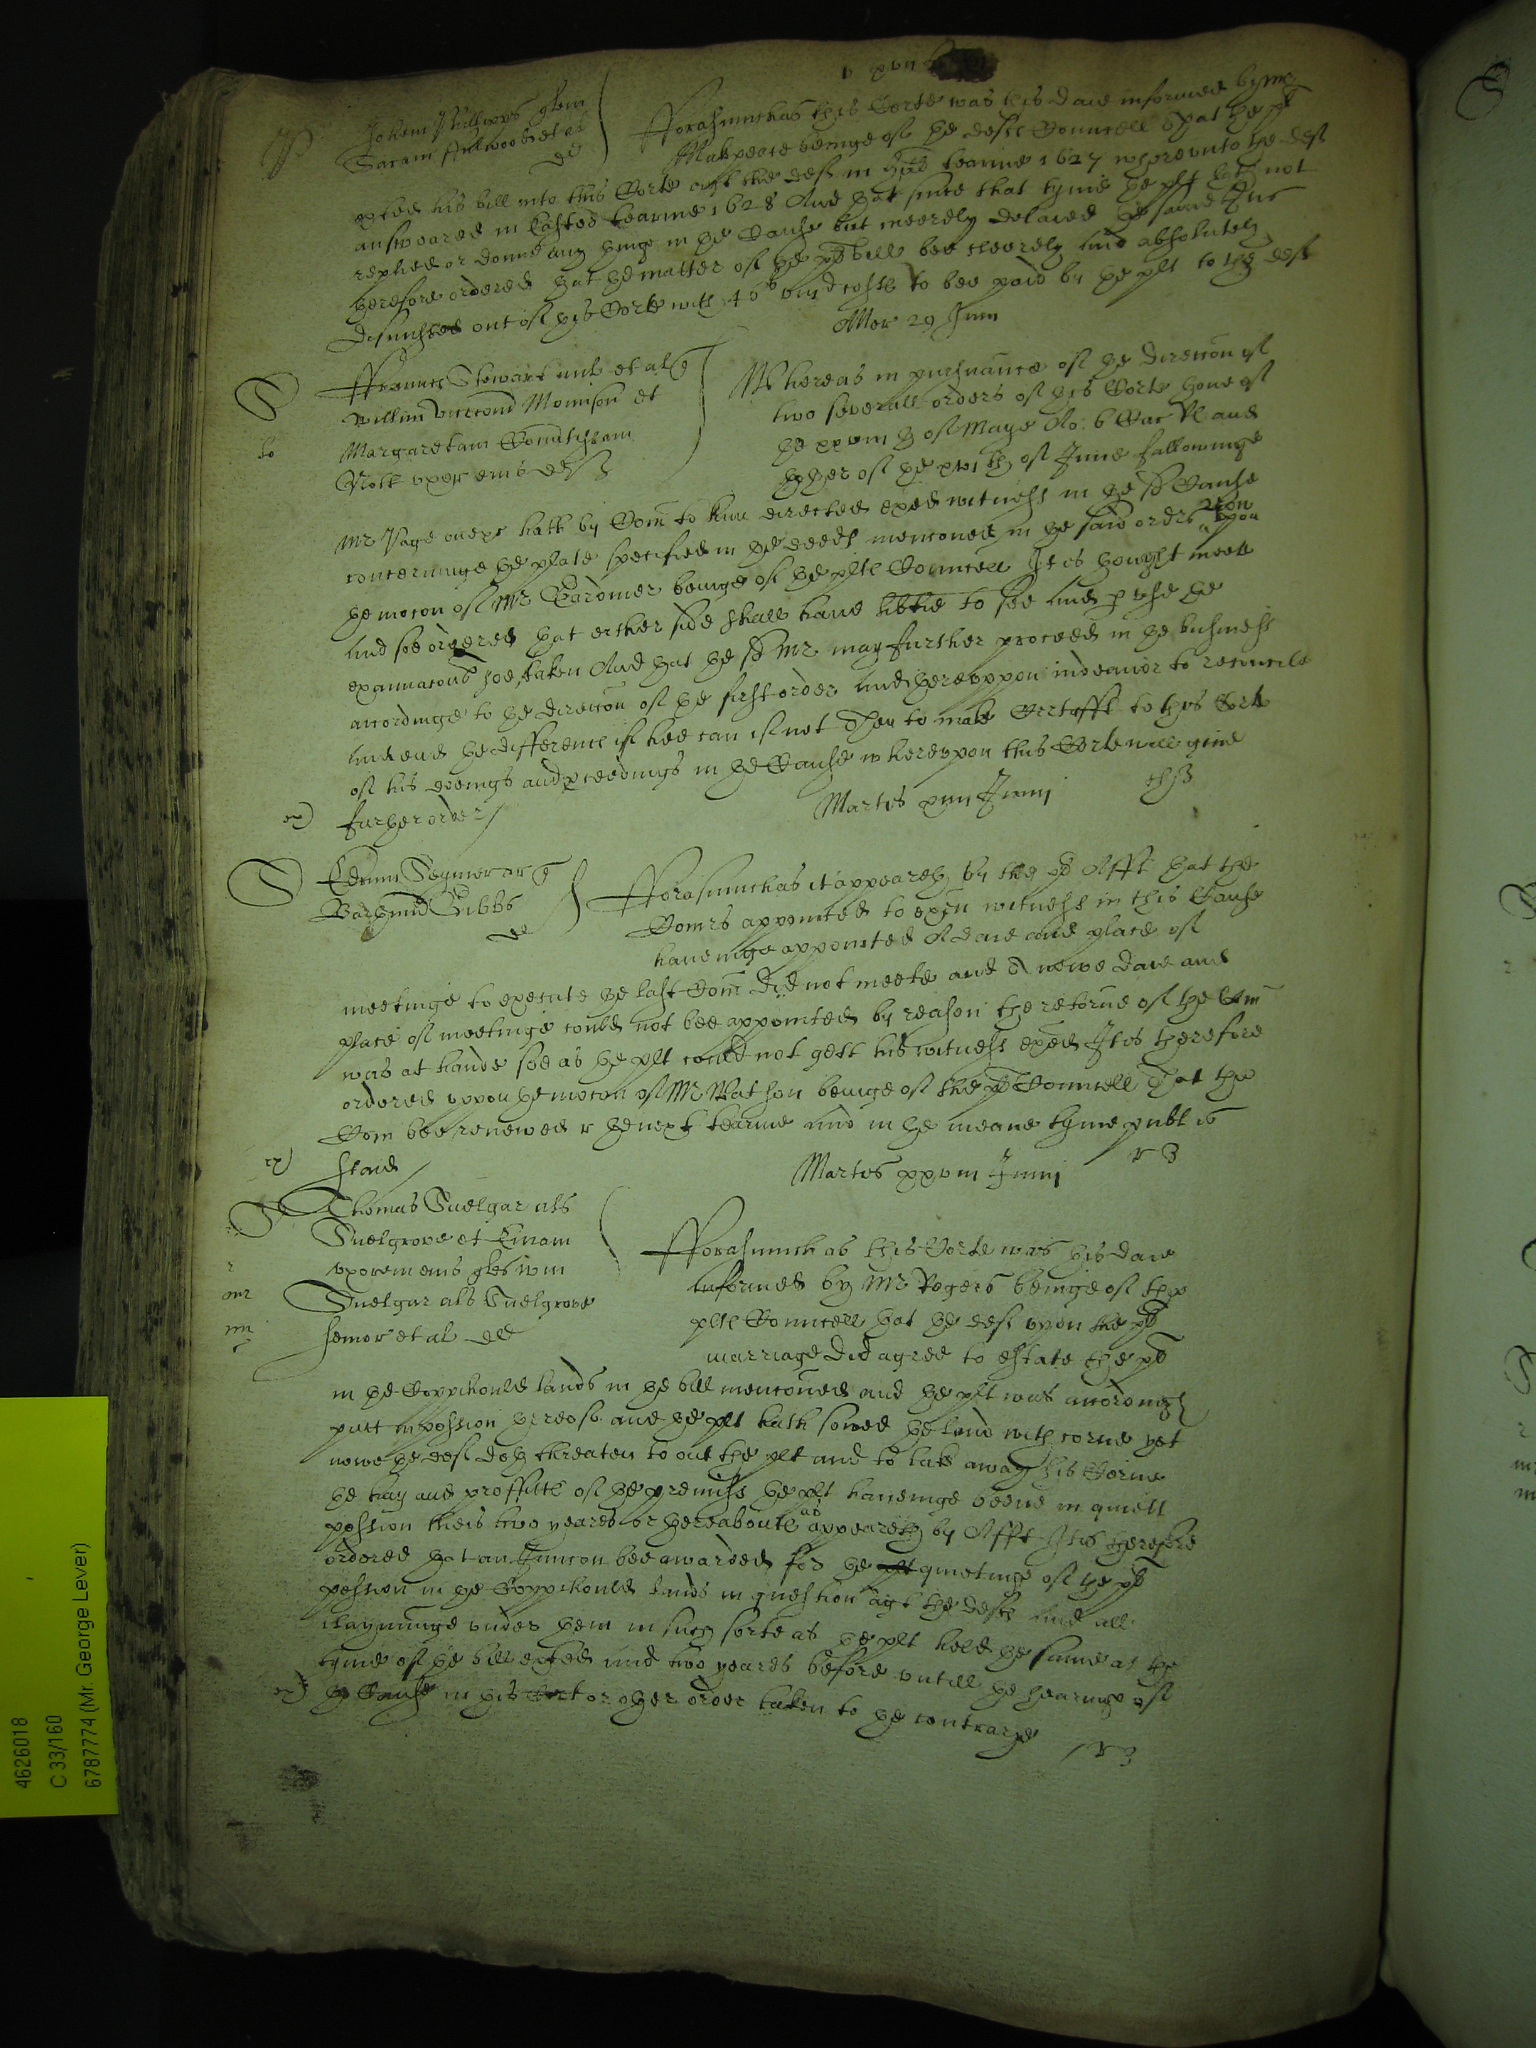 Johem Phillipps quer
Saram Fulwood et al
def
Fforasmuchas this Corte was this daie informed by Mr
Makepeace beinge of the defts Councell That the plt
exhited his bill into this Corte agt the deft in tearme 1627 whereunto the deft
answeared in Easter tearme 1628 And that since that tyme the plt hath not
replied or donne any thinge in the Cause but meerely delaied the same It is
therefore ordered that the matter of the pts bill bee cleerely and absolutely
dismissed out of this Corte with costs to bee paid by the plt to the deft
Mer 29 Junii
S
Ffrancis Stewart mil et al quer
Willim vicecom Monnson et
Margaretam Comitissam
Nott vxor eius def
to
Whereas in pursuance of the direccon of
two severall orders of this Corte thone of
the xxviii th of Maye Ao: 6 Car R and
thother of the xvi th of June followinge
Mr Page one &c hath by Com to him directed exed witness in the sd Cause
concerninge the plate specified in the deeds menconed in the said orders upon
the mocon of Mr Gardiner beinge of the plts Councell It is thought meete
and soe ordered that either side shall have libtie to see and pvse the
examinacons soe taken And that the sd Mr may further proceed in the business
accordinge to the direccon of the first order and thereuppon indeavor to reconcile
and end the differences if hee can if not Then to make Certifft to this Corte
of his doeings and pceedings in the Cause whereupon this Corte will give
further order
ex)
Martis Junii
S
Edrum Seymor ar quer
Barthmu Gibbs
def
Fforasmuchas it appeareth by the pts Afft that the
Comrs appointed to exen witness in this Cause
haveinge appointed A daie and place of
meetinge to execute the last Com did not meete and A newe daie and
place of meetinge could not bee appointed by reason the retorne of the Com
was at hande soe as the plt could not gett his witness exed It is therefore
ordered uppon the mocon of Mr Watson beinge of the pts Councell That the
Com bee renewed r the next tearme and in the meane tyme publ is
staid
ex)
Martis xxviii Junii
r
Thomas Suelgar als
Suelgrove et Einam
vxorem eius quer Wm
Suelgar als Suelgrove
senior et al def
Fforasmuch as this Corte was this daie
informed by Mr Rogers beinge of the
plts Councell that the deft upon the pts
marriage did agree to estate the pts
in the Coppihould lands in the bill menconed and the plt was accordingly
putt in possion thereof and the plt hath sowed the land with corne yet
nowe the deft doth threaten to out the plt and to take away his Corne
the hay and proffitts of the premiss the plt haveinge beene in quiett
possion theis two yeares or thereabouts as appeareth by Afft It is therefore
ordered that an Iniuncon bee awarded for the quietinge of the pts
possion in the Coppihould lands in question agt the defts and all
clayminge under them in such sorte as the plt held the same at the
tyme of the bill exhited and two yeares before untill the hearinge of
the Cause in this Corte or other order taken to the contrarye
ex)
4626018
C 33/160
6787774 (Mr. George Lever)